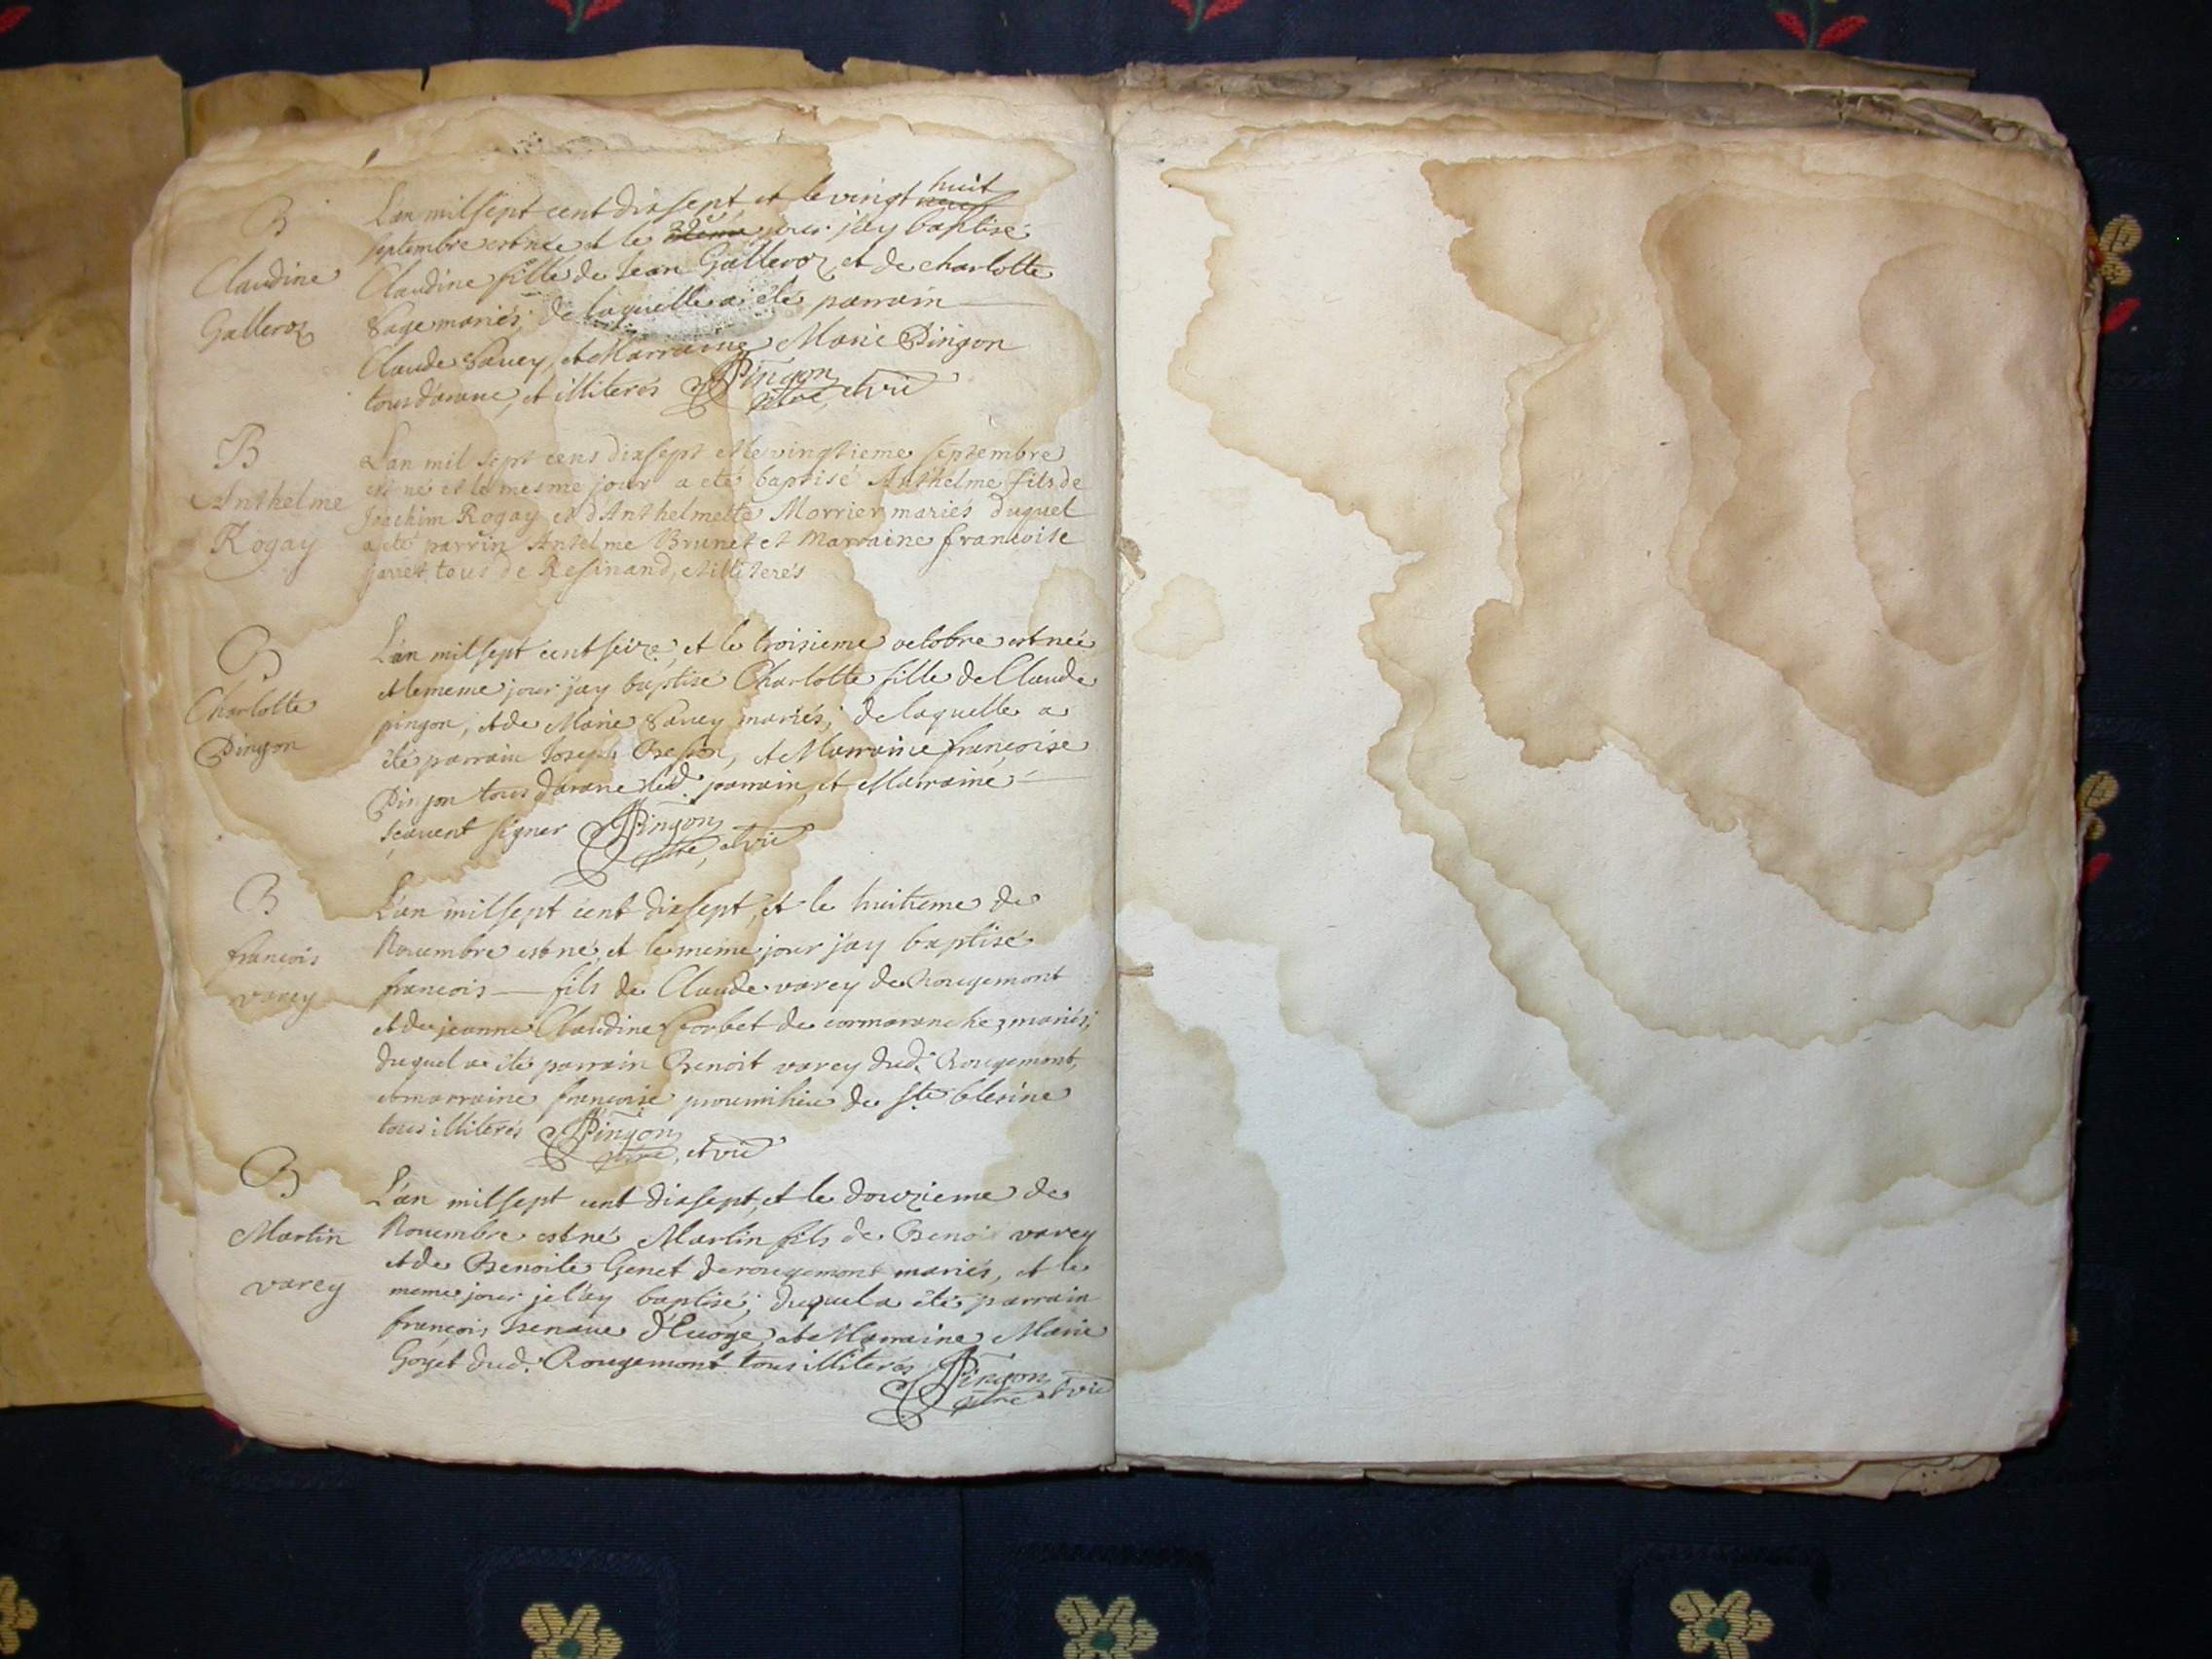 B
Claudine
Galleroz
L'an mil sept cent dix sept, et le vingt huit
septembre est née et le jour j'ay baptisé
Claudine fille de Jean Galleroz et de charlotte
Sage mariés; de laquelle a été parrain
Claude Savey, et Marraine Marie Pingon
tous d'arane, et illiterés Pingon
ptre, et vic
B
Anthelme
Rogay
L'an mil sept cens dix sept et le vingtieme septembre
est né et le mesme jour a eté baptisé Anthelme fils de
Joachim Rogay et d'Anthelmette Morrier mariés duquel
a eté parrin Antelme Brunet et Marraine francoise
javet tous de Resinand, et illiterés
B
Charlotte
Pingon
L'an mil sept cent seize, et le troisieme octobre est née
et le meme jour j'ay baptisé Charlotte fille de Claude
pingon, et de Marie Savey mariés; de laquelle a
été parrain Joseph Besson, et Marraine françoise
Pingon tous d'arane lesd. parrain, et Marraine
sçavent signer Pingon
ptre, et vic
B
francois
varey
L'an mil sept cent dix sept, et le huitieme de
Novembre est né, et le meme jour j'ay baptisé
francois fils de Claude varey de Rougemont
et de jeanne Claudine Corbet de cormaranche mariés;
duquel a été parrain Benoit varey dud. Rougemont,
et marraine francoise de ste blesine
tous illiterés Pingon
ptre, et vic
B
Martin
varey
L'an mil sept cent dix sept, et le douzieme de
Novembre est né Martin fils de Benoi varey
et de Benoite Genet de rougemont mariés, et le
meme jour je l'ay baptisé; duquel a été parrain
françois Benaue d'Evoge, et Marraine Marie
Goyet dud. Rougemont tous illiterés Pingon
ptre et vic